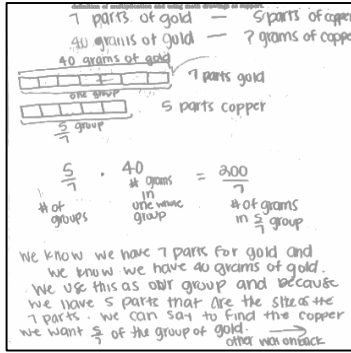 definition of multiplication and using math drawings as support.
7 parts of gold — 5 parts of copper
40 grams of gold — ? grams of coppe
40 grams of gold
7 parts gold
one group
5 parts copper
5/7 group
5/7 · 40 = 200/7
# of groups
# grams in one whole group
# of grams in 5/7 group
We know we have 7 parts for gold and
we know we have 40 grams of gold.
We use this as our group and because
we have 5 parts that are the size of the
7 parts. we can say to find the copper
we want 5/7 of the group of gold. →
other way on back